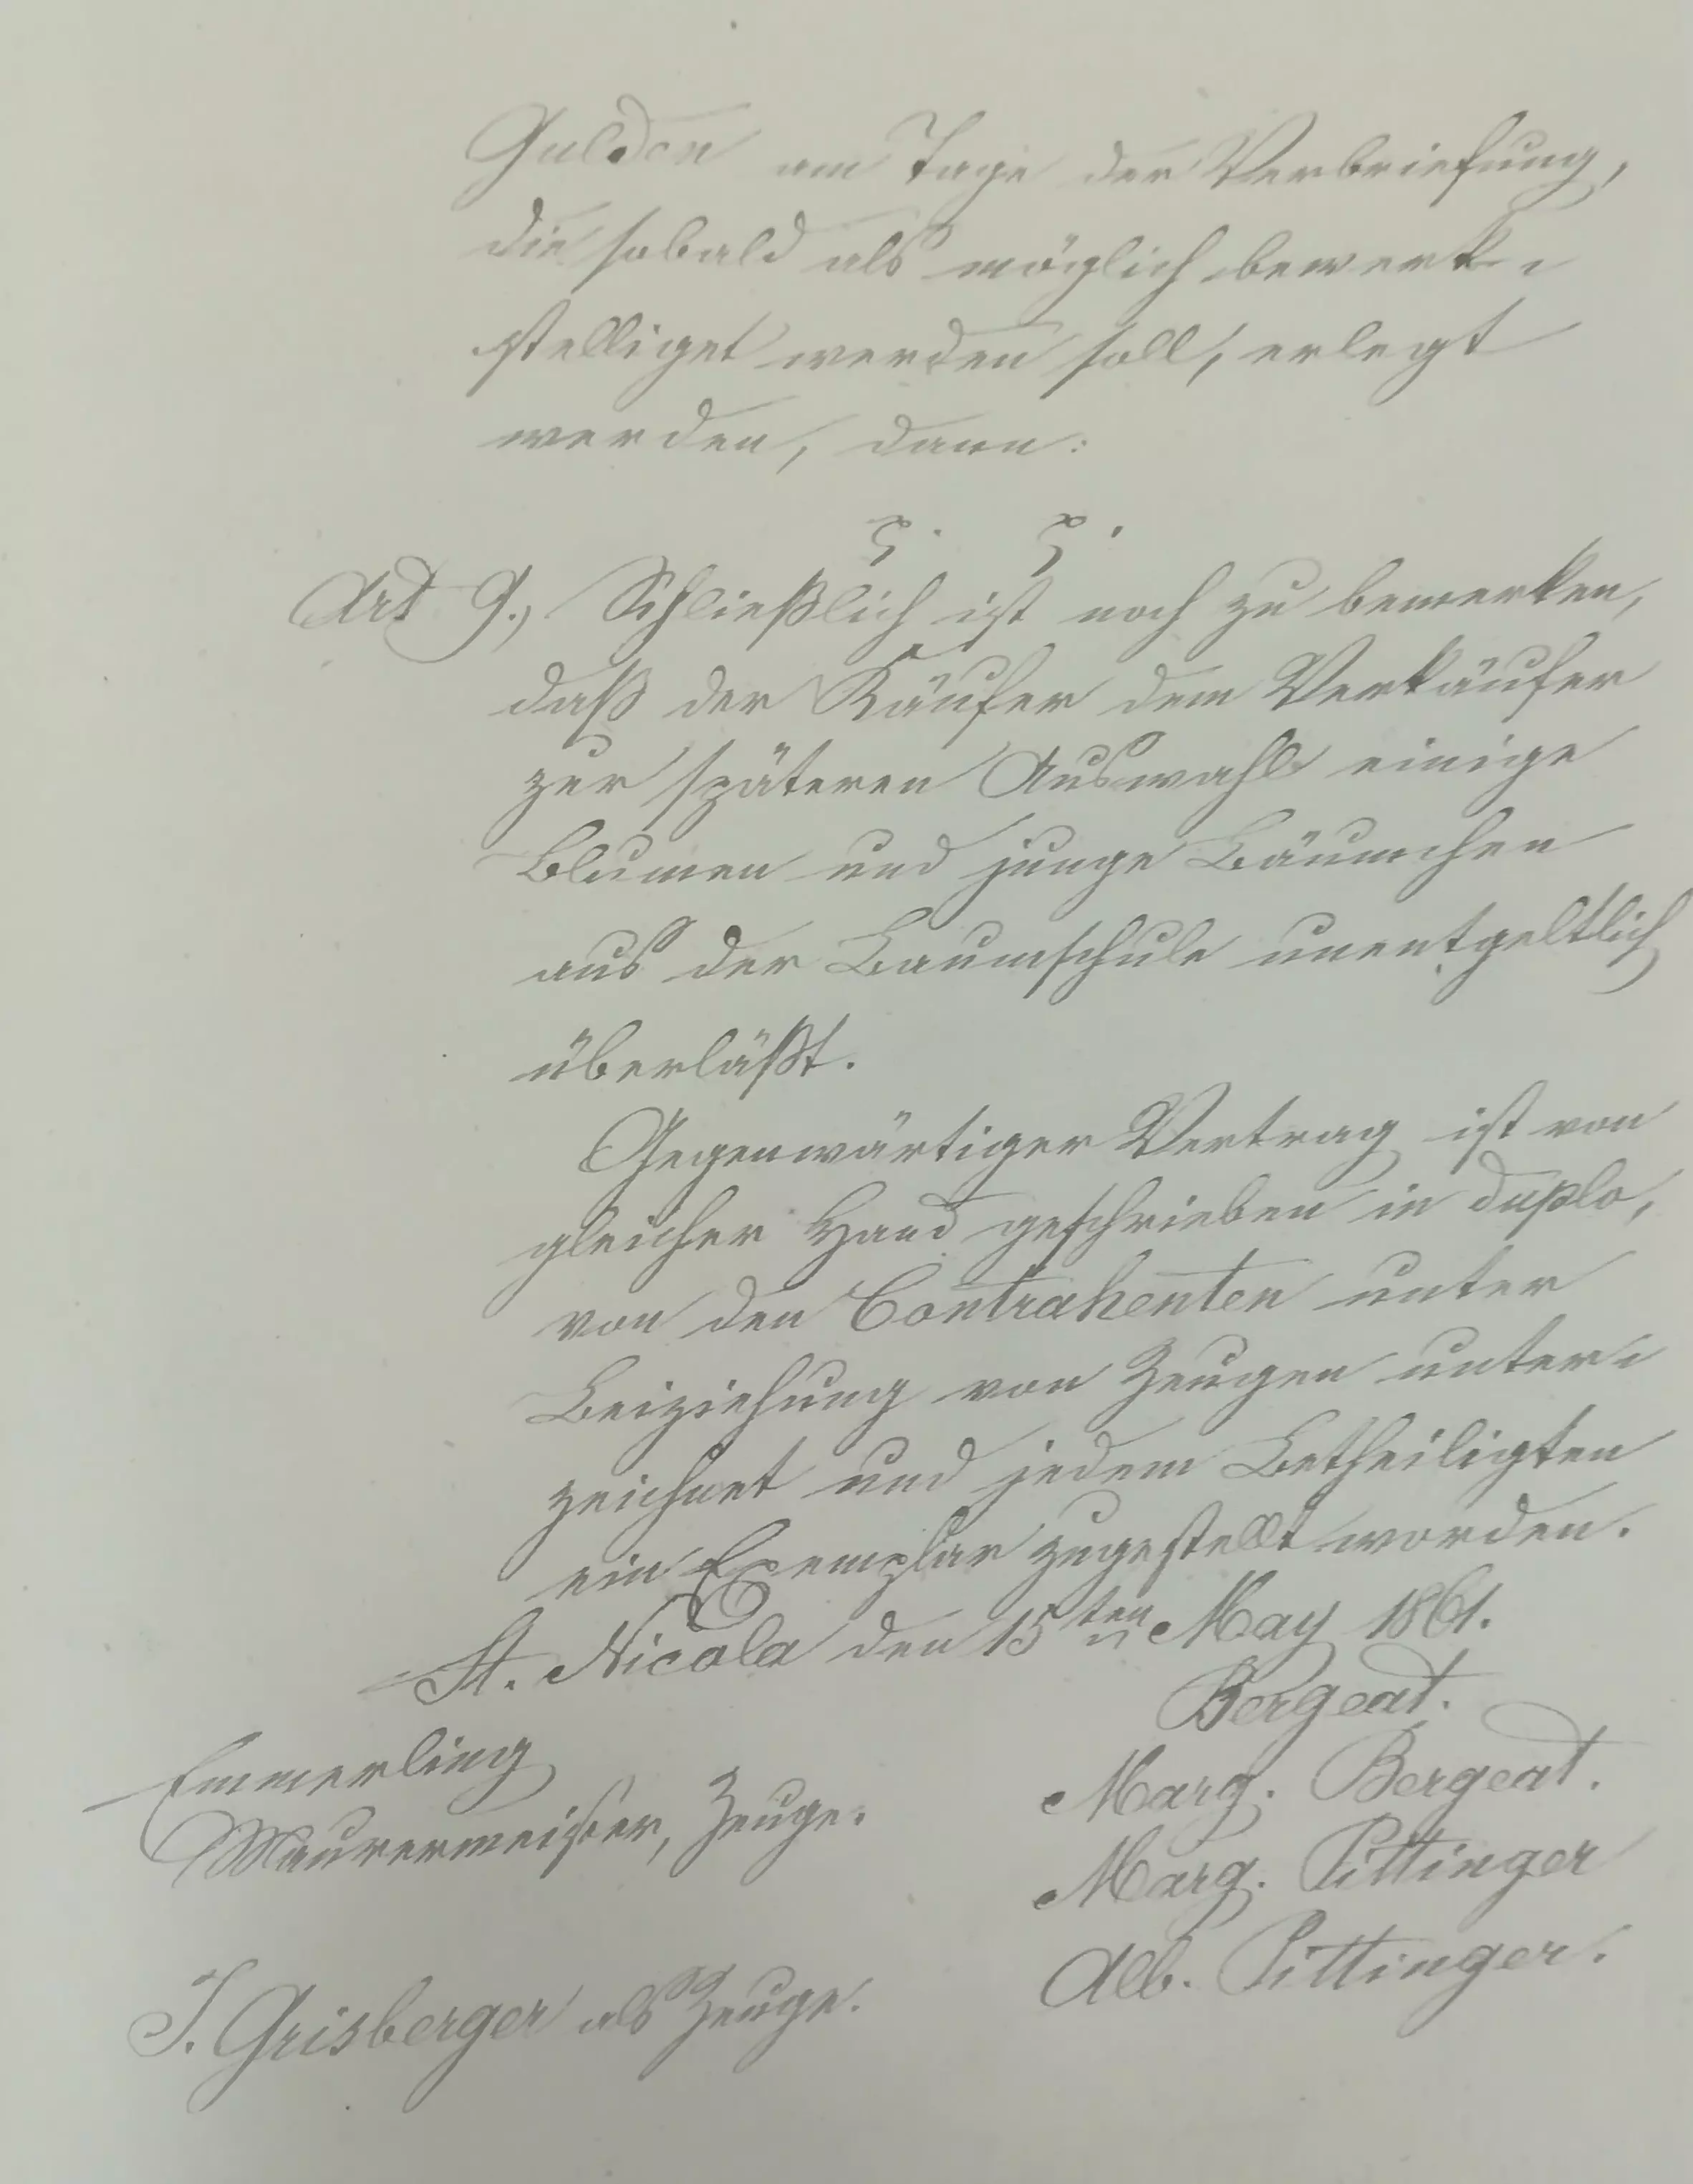 Gulden am Tage der Verbriefung,
die sobald als möglich bewerk-
stelliget werden soll, erlegt
werden, dann:
Art 9.) Schließlich ist noch zu bemerken,
daß der Käufer dem Verkäufer
zur späteren Auswahl einige
Blumen und junge Bäumchen
aus der Baumschule unentgeltlich
überläßt.
Gegenwärtiger Vertrag ist von
gleicher Hand geschrieben in duplo,
von den Contrahenten unter
Beiziehung von Zeugen unter-
zeichnet und jedem Betheiligten
ein Exemplar zugestellt worden.
St. Nicola den 15ten May 1861.
Bergeat.
Emmerling
Marg. Bergeat.
Maurermeister, Zeuge.
Marg. Pittinger
Alb. Pittinger.
J. Grisberger als Zeuge.